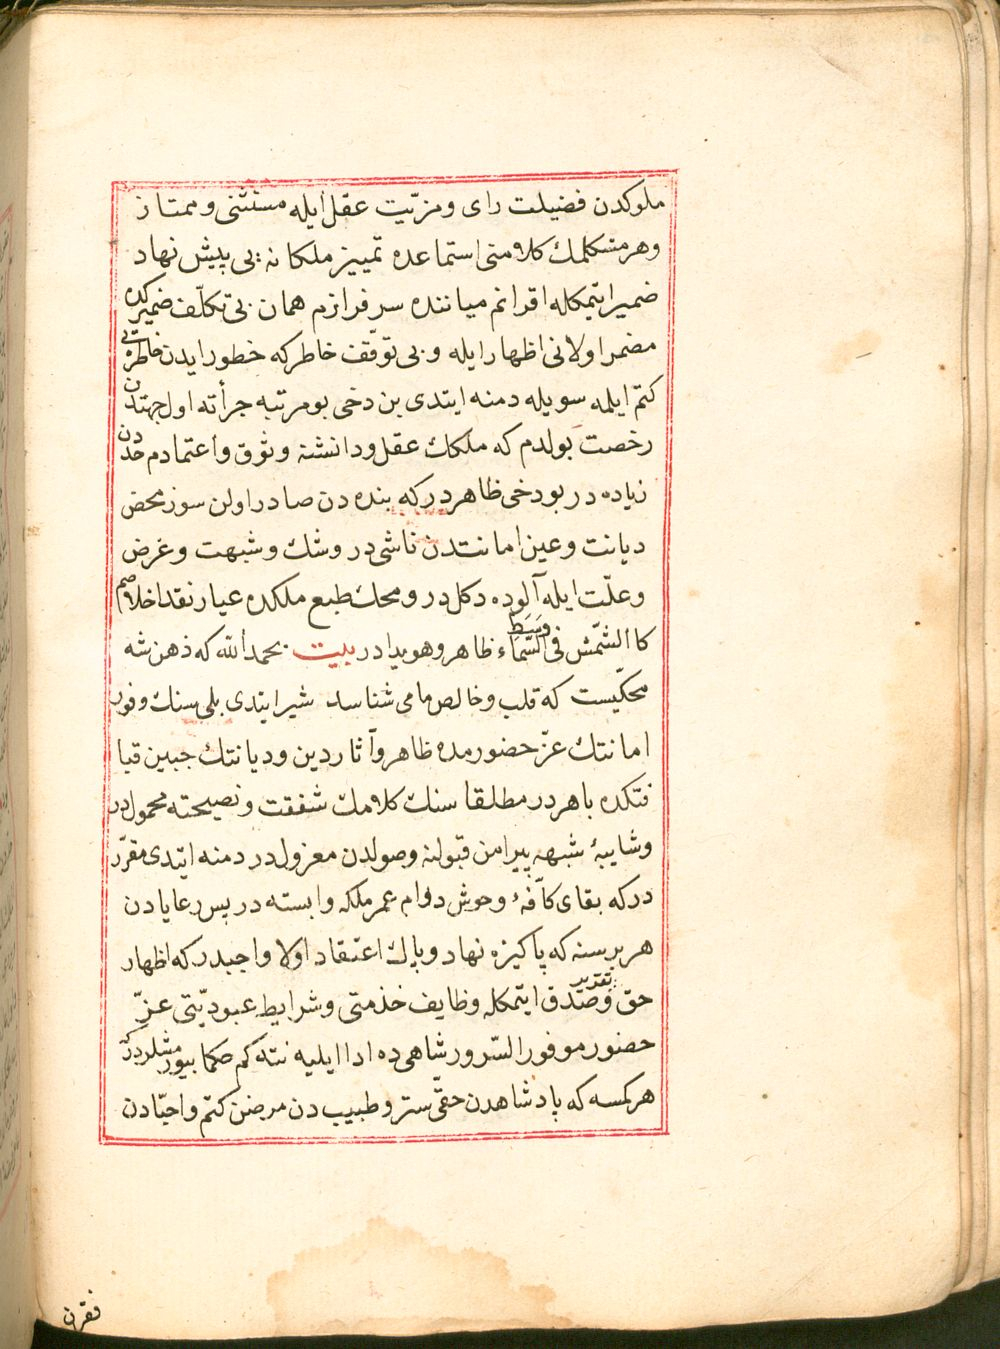 ملوكدن فضيلت راى ومزيّت عقل ايله مستثنى وممتاز
وهر متكلمك كلامنى استماعده تمييز ملكانه يى پيش نهاد
ضمير ايتمكله اقرانم مياننده سرفرازم همان بى تكلّف ضميركده
مضمر اولانى اظهار ايله وبى توقّف خاطركه خطور ايدن خاطره يى
كتم ايلمه سويله دمنه ايتدى بن دخى بو مرتبه جرأته اول جهتدن
رخصت بولدم كه ملكك عقل ودانشنه وثوق واعتمادم حددن
زياده در بو دخى ظاهردر كه بنده دن صادر اولن سوز محض
ديانت وعين امانتدن ناشى در وشك وشبهت وغرض
وعلّت ايله آلوده دكلدر ومحك طبع ملكده عيار نقد اخلاصم
كاالشّمش فى وَسَطِ السّماء ظاهر وهويدادر بيت بحمد الله كه ذهن شه
محكّيست كه قلب وخالص مامى شناسد شير ايتدى بلى سنك وفور
امانتك عزّ حضورمده ظاهر وآثار دين وديانتك جبين قيا
فتكده باهردر مطلقا سنك كلامك شفقت ونصيحته محمولدر
وشايبۀ شبهه پيرامن قبولنه وصولدن معزولدر دمنه ايتدى مقرّر
دركه بقاى كآفۀ وحوش دوام عمر ملكه وابسته در پس رعايادن
هر برسنه كه پاكيزه نهاد وپاك اعتقاد اولا واجبدر كه اظهار
حق وتقدير صدق ايتمكله وظايف خذمتى وشرايط عبوديّتى عزّ
حضور موفور السّرور شاهى ده ادا ايليه نته كم حكما بيورمشلردركه
هر كمسه كه پادشاهدن حقّى ستر وطبيب دن مرضن كتم واحبّادن
فقرن